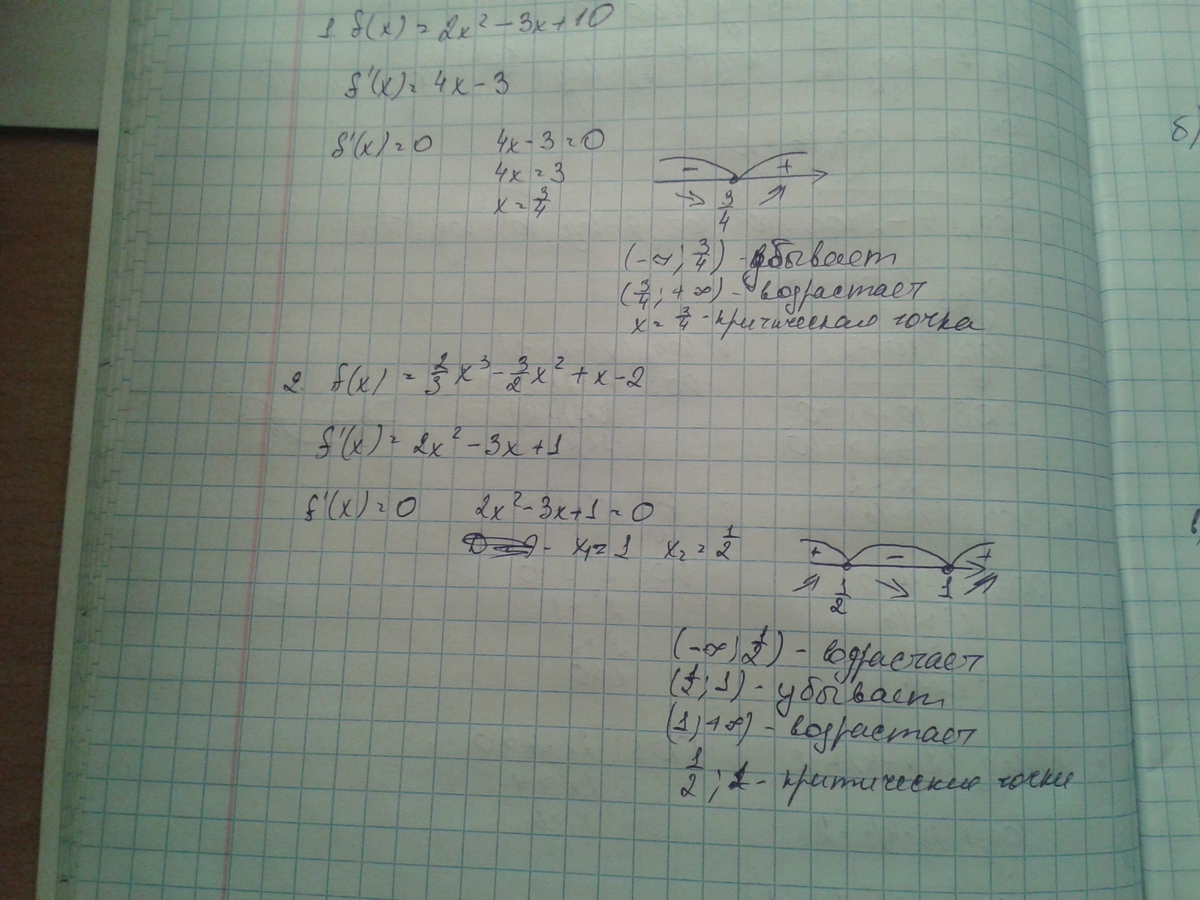 1. f(x) = 2x² - 3x + 10
f'(x) = 4x - 3
f'(x) = 0 4x - 3 = 0
4x = 3
x = 3/4
- +
3/4
(-∞; 3/4) - убывает
(3/4; +∞) - возрастает
x = 3/4 - критическая точка
2. f(x) = 2/3 x³ - 3/2 x² + x - 2
f'(x) = 2x² - 3x + 1
f'(x) = 0 2x² - 3x + 1 = 0
x₁ = 1 x₂ = 1/2
+ - +
1/2 1
(-∞; 1/2) - возрастает
(1/2; 1) - убывает
(1; +∞) - возрастает
1/2; 1 - критические точки
б)